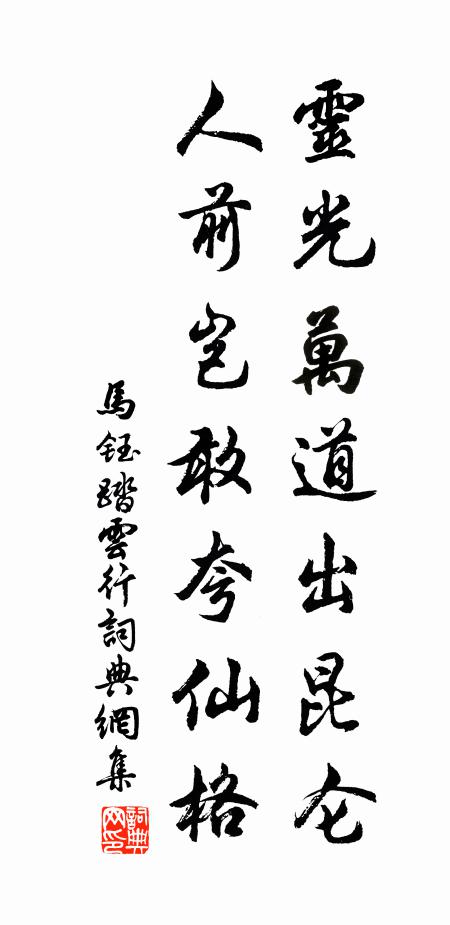 靈光萬道出昆仑
人前岂敢夸仙格
馬鈺踏雲行詞典網集
詞典网印